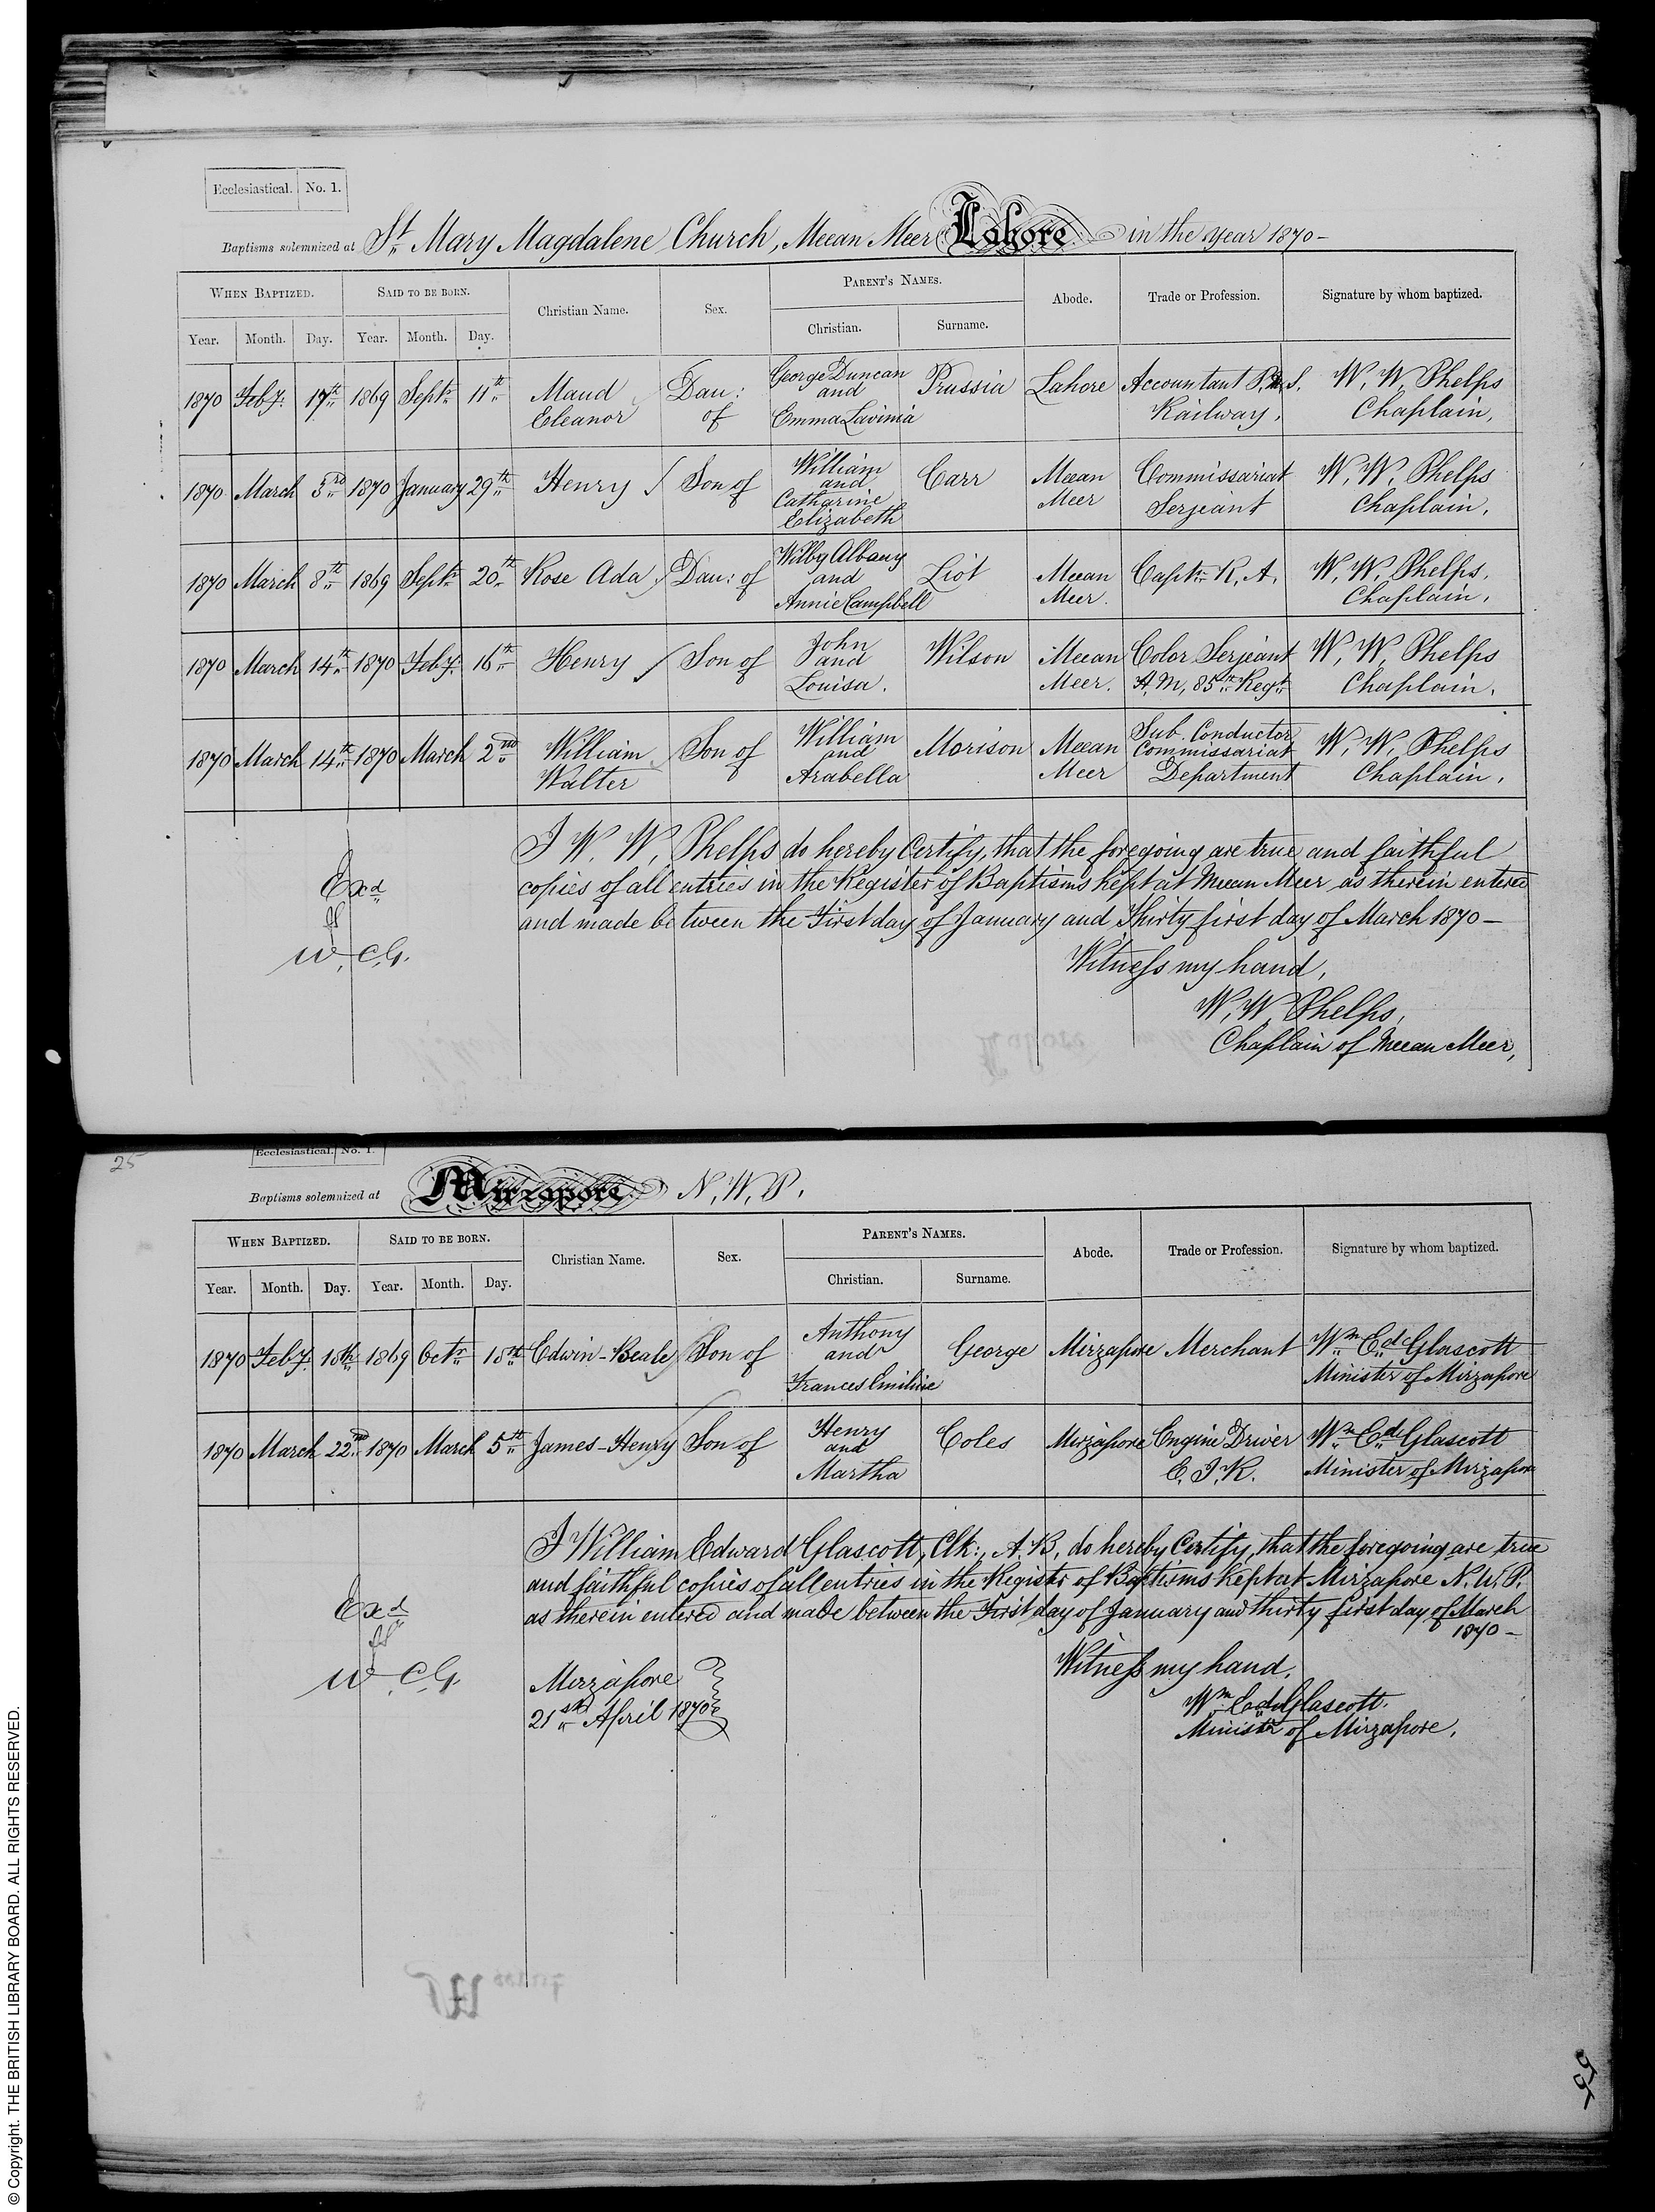 Ecclesiastical. No. 1.
Baptisms solemnized at St. Mary Magdalene Church, Meean Meer Lahore in the year 1870 -
When Baptized. Said to be born. Christian Name. Sex. Parent's Names. Abode. Trade or Profession. Signature by whom baptized.
Year. Month. Day. Year. Month. Day. Christian. Surname.
1870 Feby. 17th 1869 Septr. 11th Maud Eleanor Dau: of George Duncan and Emma Lavinia Prussia Lahore Accountant Railway, W, W, Phelps Chaplain,
1870 March 3rd 1870 January 29th Henry Son of William and Catharine Elizabeth Carr Meean Meer Commissariat Serjeant W, W, Phelps Chaplain,
1870 March 8th 1869 Septr. 20th Rose Ada Dau: of Wilby Albany and Annie Campbell Liot Meean Meer. Captn. R, A, W, W, Phelps, Chaplain,
1870 March 14th 1870 Feby. 16th Henry Son of John and Louisa. Wilson Meean Meer. Color Serjeant 85th Regt. W, W, Phelps Chaplain,
1870 March 14th 1870 March 2nd William Walter Son of William and Arabella Morison Meean Meer Sub. Conductor Commissariat Department W, W, Phelps Chaplain,
I W, W, Phelps do hereby Certify, that the foregoing are true and faithful
copies of all entries in the Register of Baptisms Kept at Meean Meer as therein entered
and made between the First day of January and Thirty first day of March 1870 -
Exd
W, C, G.
Witness my hand,
W, W, Phelps,
Chaplain of Meean Meer,
25
Ecclesiastical. No. 1.
Baptisms solemnized at Mirzapore N, W, P.
When Baptized. Said to be born. Christian Name. Sex. Parent's Names. Abode. Trade or Profession. Signature by whom baptized.
Year. Month. Day. Year. Month. Day. Christian. Surname.
1870 Feby. 1869 Octr. Edwin-Beale Son of Anthony and Frances Emiline George Mirzapore Merchant Wm Ed Glascott Minister of Mirzapore
1870 March 22nd 1870 March 5th James-Henry Son of Henry and Martha Coles Mirzapore Engine Driver E. I. R. Wm Ed Glascott Minister of Mirzapore
I William Edward Glascott, Clk:, A. B, do hereby Certify, that the foregoing are true
and faithful copies of all entries in the Register of Baptisms Kept at Mirzapore N. W. P.
as therein entered and made between the First day of January and thirty first day of March
1870 -
Exd
W. C. G.
Mirzapore
21st April 1870
Witness my hand,
Wm Ed Glascott.
Minister of Mirzapore,
55
© Copyright. THE BRITISH LIBRARY BOARD. ALL RIGHTS RESERVED.